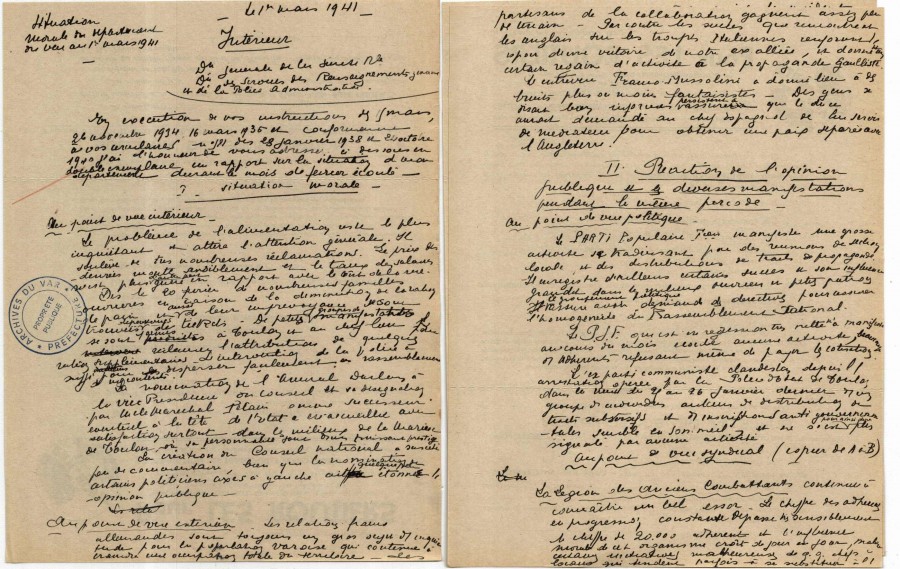 Situation
morale du département
du Var au 1er mars 1941
Le 1er mars 1941
Intérieur
Don Générale de la Sureté Nle
Dion
et de la Police Administrative
En exécution de vos instructions des 5 mars,
26 novembre 1934, 16 mars 1935 et conformément
à vos circulaires n° 181 des 28 janvier 1938 et 24 octobre
1940 j'ai l'honneur de vous adresser, ci-dessous en
double exemplaire, un rapport sur la situation de mon
département durant le mois de février écoulé -
situation morale -
Au point de vue intérieur -
Le problème de l'alimentation reste le plus
inquiétant et attire l'attention générale. Il
soulève de très nombreuses réclamations. Le prix des
denrées monte sensiblement et le taux des salaires
n'est plus en rapport avec le coût de la vie -
Dès le 20 février de nombreuses familles
ouvrières en raison de la diminution de la ration
de pain
trouvées de tickets. De petits
se sont à Toulon et au chef lieu pour
réclamer l'attribution de quelques
rations supplémentaires. L'intervention de la Police a
suffi pour disperser facilement ces rassemblements
La nomination de l'Amiral Darlan à
la vice Présidence du Conseil et sa désignation
par M. le Maréchal Pétain comme successeur
éventuel à la tête de l'Etat a été accueillie avec
satisfaction surtout dans le milieu de la Marine
de Toulon où sa personnalité jouit d'un puissant prestige
La création du Conseil national a suscité
peu de commentaires bien que la nomination de
certains politiciens axés à gauche ait quelque peu étonné l'
opinion publique -
Au point de vue extérieur - Les relations franco
allemandes sont toujours un gros sujet d'inquié
tude pour la population varoise qui continue à
craindre une occupation totale du territoire - Les
partisans de la collaboration gagnent assez peu
de terrain - Par contre les succès que remportent
les anglais sur les troupes italiennes renforcent
l'espoir d'une victoire de notre ex alliée, et donnent un
certain regain d'activité à la propagande Gaulliste
L'entrevue Franco-Mussolini a donné lieu à des
bruits plus ou moins fantaisistes - Des gens se
disant bien informés persistent à assurer que le duce
aurait demandé au chef espagnol de lui servir
de médiateur pour obtenir une paix séparée avec
l'Angleterre.
II - Réaction de l'opinion
publique et diverses manifestations
pendant la même période -
Au point de vue politique -
Le PARTI Populaire Français manifeste une grosse
activité se traduisant par des réunions de section
locale, et des distributions de tracts de propagande.
Il enregistre d'ailleurs certains succès et son influence
grandit dans les milieux ouvriers et petits patrons
Le groupement politique
l'homogénéité du Rassemblement National.
Le P.S.F. qui est en régression n'a manifesté
au cours du mois écoulé aucune activité, beaucoup
d'adhérents refusant même de payer la cotisation
L'ex parti communiste clandestin depuis l'
arrestation opérée par la Police d'Etat de Toulon,
dans la nuit du 20 au 26 janvier dernier d'un
groupe de individus auteurs de distribution de
tracts subversifs et d'inscriptions anti gouvernemen
tales semble en sommeil et ne s'est plus
signalé par aucune activité
Au point de vue syndical (copier de A à B)
La Légion des Anciens Combattants continue à
connaître un bel essor - Le chiffre des adhérents
en progression constante dépasse très sensiblement
le chiffre de 20.000 adhérents et l'influence
morale de cet organisme croît de jour en jour, malgré
certaines initiatives malheureuses de q.q. chefs
locaux qui tendent parfois à se substituer à
ARCHIVES DU VAR
PROPRIETE PUBLIQUE
PREFECTURE